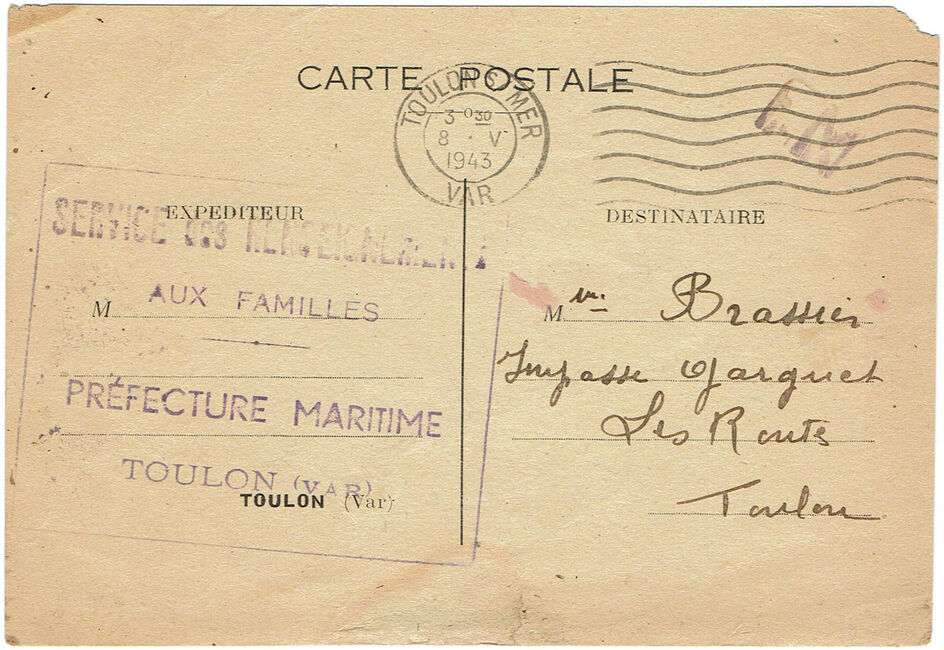 CARTE POSTALE
TOULON S MER
3 - 0 30
8 · V
1943
VAR
EXPEDITEUR
SERVICE DES RENSEIGNEMENTS
AUX FAMILLES
M
PRÉFECTURE MARITIME
TOULON (VAR)
TOULON (Var)
DESTINATAIRE
Mme Brassier
Impasse Garguet
Les Routs
Toulon